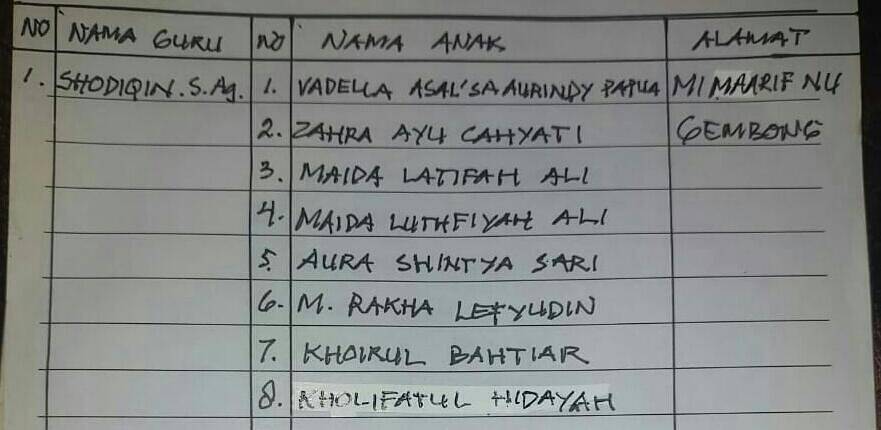 NO NAMA GURU NO NAMA ANAK ALAMAT
1. SHODIQIN.S.Ag. 1. VADELLA ASAL'SA AURINDY PAPUA MI MAARIF NU
2. ZAHRA AYU CAHYATI GEMBONG
3. MAIDA LATIFAH ALI
4. MAIDA LUTHFIYAH ALI
5. AURA SHINTYA SARI
6. M. RAKHA LEFYUDIN
7. KHOIRUL BAHTIAR
8. KHOLIFATUL HIDAYAH